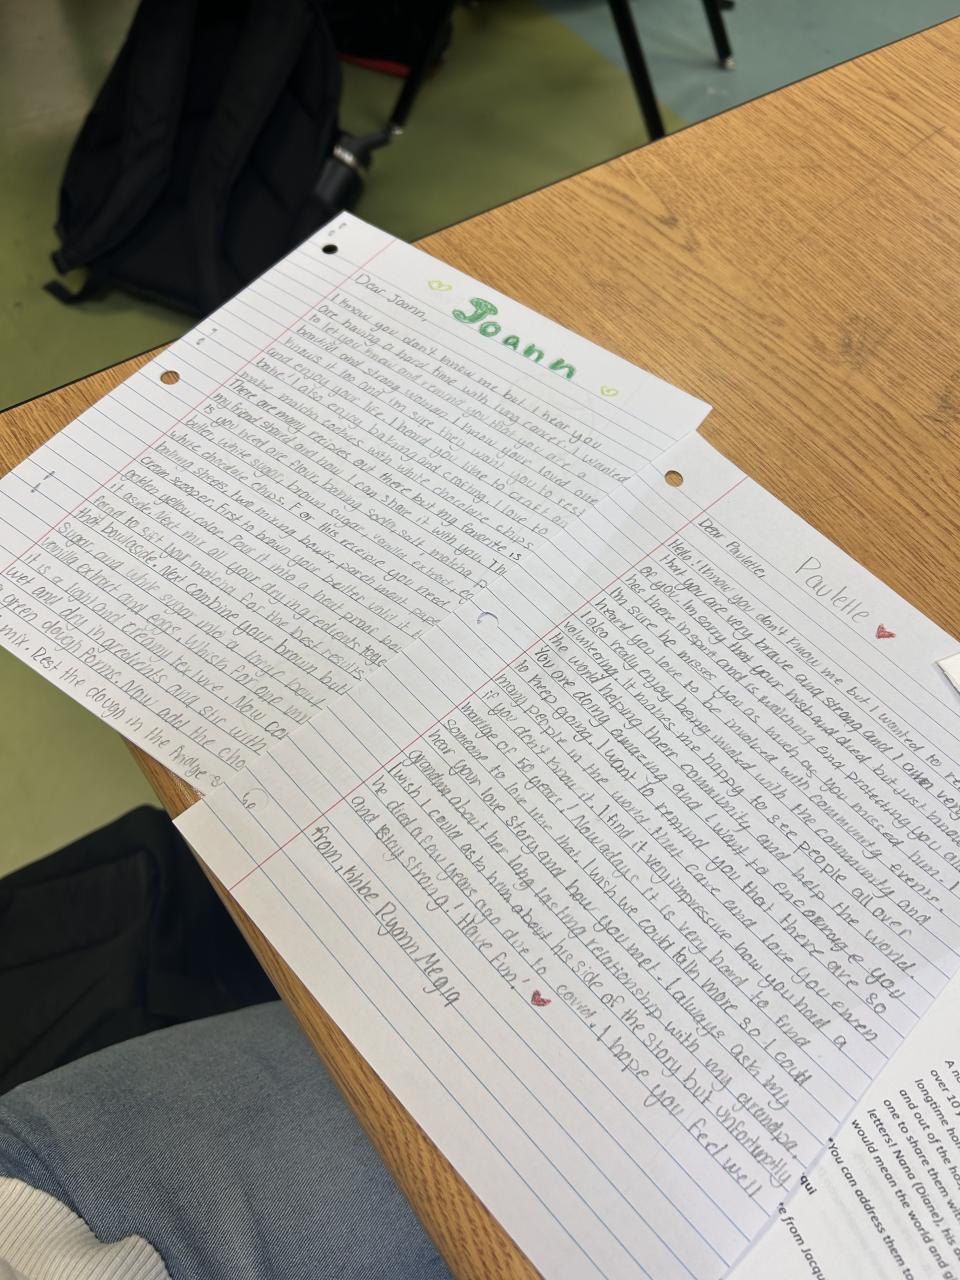 Joann
Dear Joann,
I know you don't know me but I hear you
are having a hard time with lung cancer. I wanted
to let you know and remind you that you are a
beautiful and strong woman. I know your loved one
knows it too and I'm sure they want you to rest
and enjoy your life. I heard you like to craft an
bake! I also enjoy baking and crafting. I love to
make matcha cookies with white chocolate chips.
There are many recipes out there but my favorite is
my friend shared and now I can share it with you. Th
is you need are flour, baking soda, salt, matcha p
butter, white sugar, brown sugar, vanilla extract, e
white chocolate chips. For this receipe you need
baking sheets, two mixing bowls, parchment pape
cream scooper. First to brown your butter until it
golden yellow color. Pour it into a heat
it aside. Next mix all your dry ingredients toge
to sift your matcha for the best results
that bowl aside. Next combine your brown but
sugar and white sugar into a large bowl
vanilla extract and eggs. Whisk for one mi
it is a light and creamy texture. Now co
wet and dry ingredients and stir with
green dough forms. Now add the cho
mix. Rest the dough in the fridge
Paulette
Dear Paulette,
Hello! I know you don't know me but I wanted to re
that you are very brave and strong and I am very
of you. I'm sorry that your husband died but just know
hes there in spirit and is watching and protecting you an
I'm sure he misses you as much as you missed him. I
heard you love to be involved with community events.
I also really enjoy being involved with the community and
volunteering. It makes me happy to see people all over
the word helping their community and help the world.
You are doing amazing and I want to encourage you
to keep going. I want to remind you that there are so
many people in the world that care and love you even
if you don't know it. I find it very impressive how you had a
marrige of 50 years! Nowadays it is very hard to find
someone to love like that. I wish we could talk more so I could
hear your love story and how you met. I always ask my
grandma about her long lasting relationship with my grandpa.
I wish I could ask him about his side of the story but unfortunatly
he died a few years ago due to covid. I hope you feel well
and stay strong! Have fun!
from, Khloe Ryann Mejia
A n
over 10 y
longtime ho
and out of the ho
one to share them wit
letters! Nana (Diane), his
would mean the world and g
You can address them to
qui
e from Jacqu